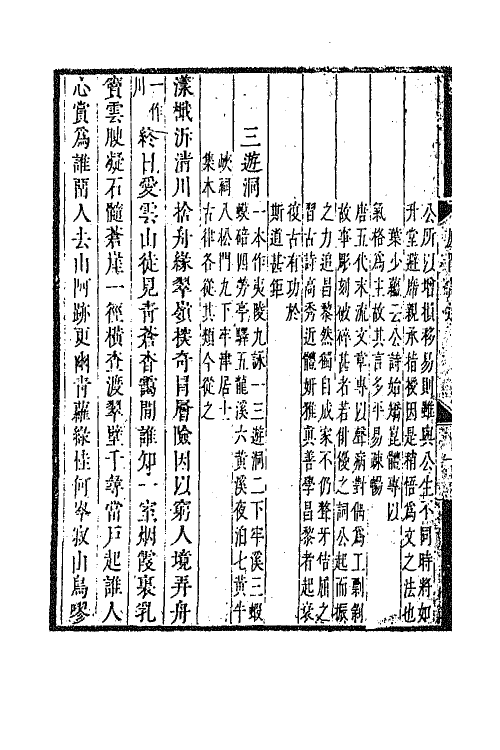 公所以增損移易則雖與公生不同時將如
升堂避席親承指授因是稍悟為文之法也
葉少蘊云公詩始矯崑體專以
氣格為主故其言多平易疎暢
唐五代末流文章專以聲病對偶為工剽剥
故事彫刻破碎甚者若俳優之詞公起而振
之力追昌黎然獨自成家不仍聲牙佶屈之
習古詩高秀近體妍雅真善學昌黎者起衰
復古有功於
斯道甚鉅
三遊洞
一本作夷陵九詠一三遊洞二下牢溪三蝦
蟆碚四勞亭驛五龍溪六黃溪夜泊七黃牛
峽祠八松門九下牢津居士
集本古律各從其類今從之
漾檝泝清川捨舟緣翠嶺探奇冐層險因以窮人境弄舟
一作
川
終日愛雲山徒見青蒼杳靄間誰知一室烟霞裏乳
竇雲腴凝石髓蒼崖一徑橫查渡翠壁千尋當戶起誰人
心賞為誰留人去山阿跡更幽青蘿綠桂何岑寂山鳥嘐